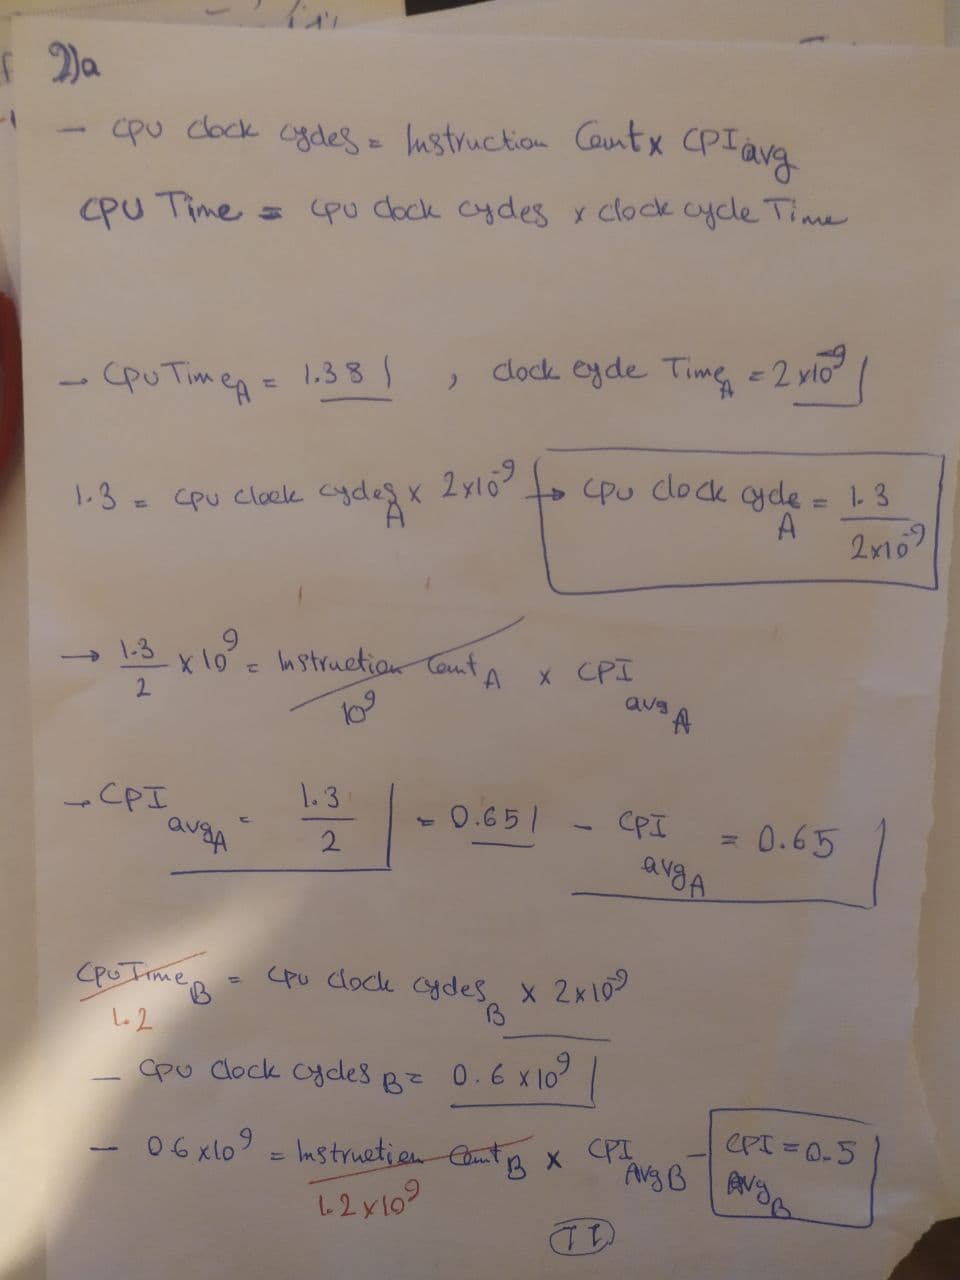 2)a
- CPU clock cycles = Instruction Count x CPI avg
CPU Time = CPU clock cycles x clock cycle Time
- CPU Time A = 1.3 s , clock cycle Time A = 2 x 10^-9
1.3 = CPU clock cycles A x 2x10^-9 → CPU clock cycle A = 1.3 / 2x10^-9
→ 1.3/2 x 10^9 = Instruction Count A x CPI avg A
10^9
→ CPI avg A = 1.3/2 = 0.65 - CPI avg A = 0.65
CPU Time B = CPU clock cycles B x 2x10^-9
1.2
- CPU clock cycles B = 0.6 x 10^9
- 0.6 x 10^9 = Instruction Count B x CPI Avg B - CPI Avg B = 0.5
1.2 x 10^9